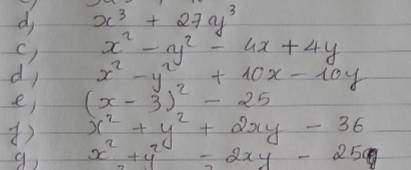 d, x³ + 27y³
c, x² - y² - 4x + 4y
d, x² - y² + 10x - 10y
e, (x - 3)² - 25
f) x² + y² + 2xy - 36
g, x² + y² - 2xy - 25